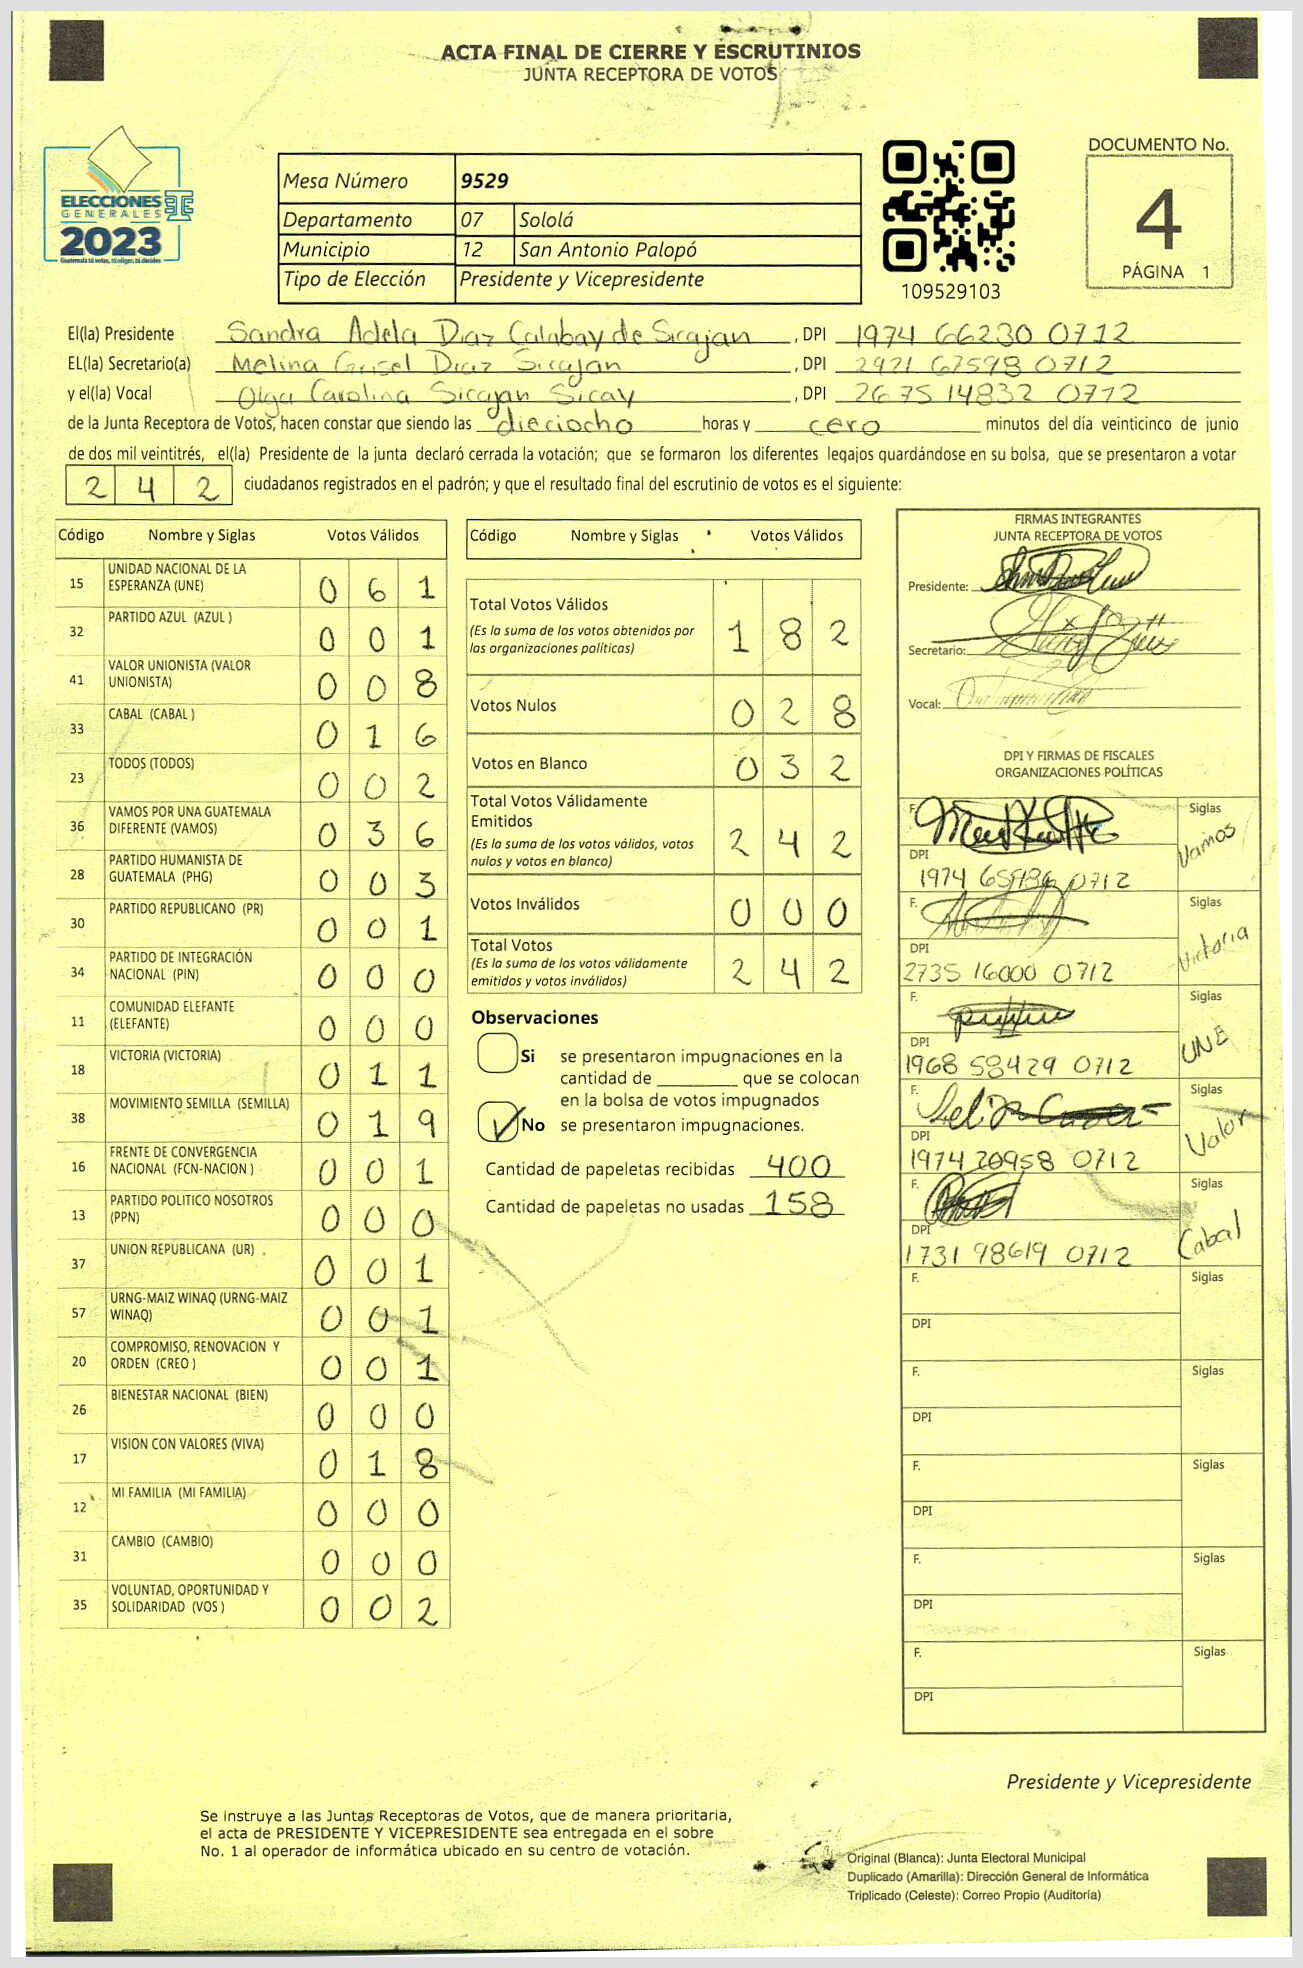 ACTA FINAL DE CIERRE Y ESCRUTINIOS
JUNTA RECEPTORA DE VOTOS
ELECCIONES
GENERALES
2023
Guatemala tú votas, tú eliges, tú decides
Mesa Número 9529
Departamento 07 Sololá
Municipio 12 San Antonio Palopó
Tipo de Elección Presidente y Vicepresidente
109529103
DOCUMENTO No.
4
PÁGINA 1
El(la) Presidente Sandra Adela Diaz Calabay de Sicajan, DPI 1974 66230 0712
EL(la) Secretario(a) Melina Grisel Diaz Sicajan, DPI 2921 67598 0712
y el(la) Vocal Olga Carolina Sicajan Sicay, DPI 2675 14832 0712
de la Junta Receptora de Votos, hacen constar que siendo las dieciocho horas y cero minutos del día veinticinco de junio
de dos mil veintitrés, el(la) Presidente de la junta declaró cerrada la votación; que se formaron los diferentes legajos guardándose en su bolsa, que se presentaron a votar
2 4 2 ciudadanos registrados en el padrón; y que el resultado final del escrutinio de votos es el siguiente:
Código Nombre y Siglas Votos Válidos
15 UNIDAD NACIONAL DE LA ESPERANZA (UNE) 0 6 1
32 PARTIDO AZUL (AZUL ) 0 0 1
41 VALOR UNIONISTA (VALOR UNIONISTA) 0 0 8
33 CABAL (CABAL ) 0 1 6
23 TODOS (TODOS) 0 0 2
36 VAMOS POR UNA GUATEMALA DIFERENTE (VAMOS) 0 3 6
28 PARTIDO HUMANISTA DE GUATEMALA (PHG) 0 0 3
30 PARTIDO REPUBLICANO (PR) 0 0 1
34 PARTIDO DE INTEGRACIÓN NACIONAL (PIN) 0 0 0
11 COMUNIDAD ELEFANTE (ELEFANTE) 0 0 0
18 VICTORIA (VICTORIA) 0 1 1
38 MOVIMIENTO SEMILLA (SEMILLA) 0 1 9
16 FRENTE DE CONVERGENCIA NACIONAL (FCN-NACION ) 0 0 1
13 PARTIDO POLITICO NOSOTROS (PPN) 0 0 0
37 UNION REPUBLICANA (UR) 0 0 1
57 URNG-MAIZ WINAQ (URNG-MAIZ WINAQ) 0 0 1
20 COMPROMISO, RENOVACION Y ORDEN (CREO ) 0 0 1
26 BIENESTAR NACIONAL (BIEN) 0 0 0
17 VISION CON VALORES (VIVA) 0 1 8
12 MI FAMILIA (MI FAMILIA) 0 0 0
31 CAMBIO (CAMBIO) 0 0 0
35 VOLUNTAD, OPORTUNIDAD Y SOLIDARIDAD (VOS ) 0 0 2
Código Nombre y Siglas Votos Válidos
Total Votos Válidos 1 8 2
(Es la suma de los votos obtenidos por
las organizaciones políticas)
Votos Nulos 0 2 8
Votos en Blanco 0 3 2
Total Votos Válidamente
Emitidos 2 4 2
(Es la suma de los votos válidos, votos
nulos y votos en blanco)
Votos Inválidos 0 0 0
Total Votos 2 4 2
(Es la suma de los votos válidamente
emitidos y votos inválidos)
Observaciones
Si se presentaron impugnaciones en la
cantidad de ________ que se colocan
en la bolsa de votos impugnados
No se presentaron impugnaciones.
Cantidad de papeletas recibidas 400
Cantidad de papeletas no usadas 158
FIRMAS INTEGRANTES
JUNTA RECEPTORA DE VOTOS
Presidente:
Secretario:
Vocal:
DPI Y FIRMAS DE FISCALES
ORGANIZACIONES POLÍTICAS
F. Siglas Vamos
DPI
1974 0712
F. Siglas Victoria
DPI
2735 16000 0712
F. Siglas UNE
DPI
1968 58429 0712
F. Siglas Valor
DPI
1974 20958 0712
F. Siglas Cabal
DPI
1731 98619 0712
F. Siglas
DPI
F. Siglas
DPI
F. Siglas
DPI
F. Siglas
DPI
F. Siglas
DPI
Presidente y Vicepresidente
Se instruye a las Juntas Receptoras de Votos, que de manera prioritaria,
el acta de PRESIDENTE Y VICEPRESIDENTE sea entregada en el sobre
No. 1 al operador de informática ubicado en su centro de votación.
Original (Blanca): Junta Electoral Municipal
Duplicado (Amarilla): Dirección General de Informática
Triplicado (Celeste): Correo Propio (Auditoría)